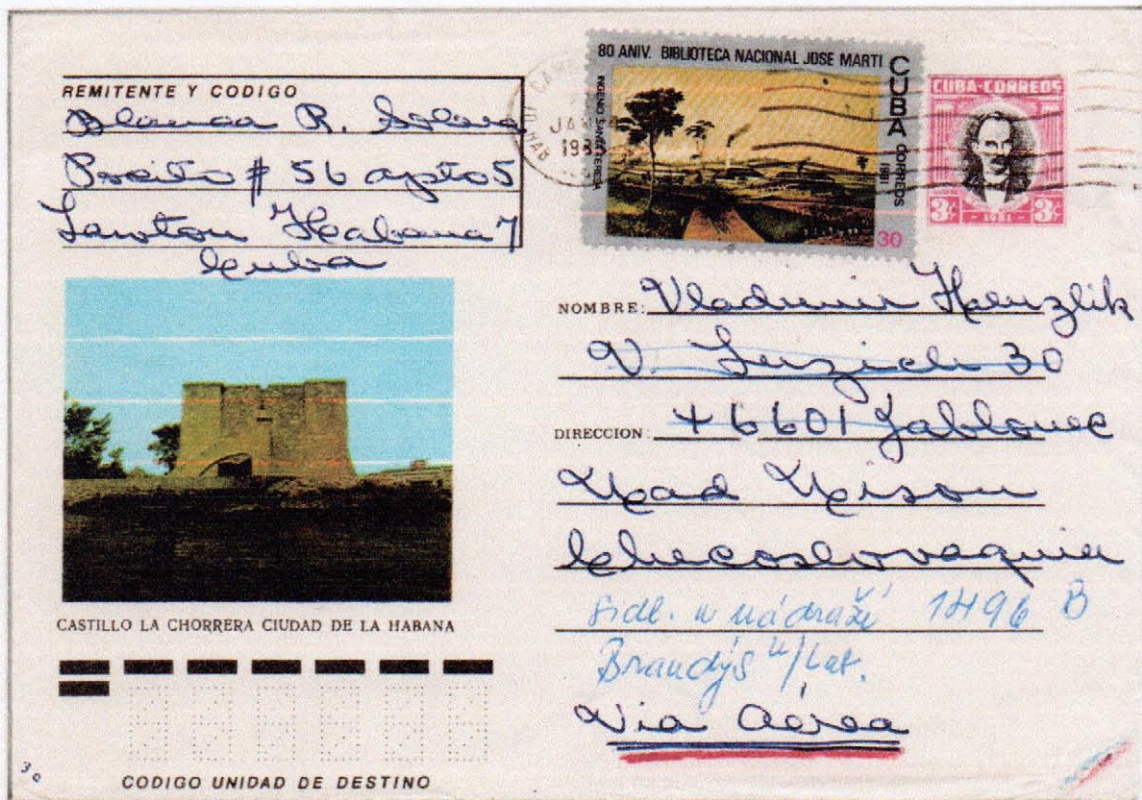 REMITENTE Y CODIGO
Blanca R.
# 56 apto 5
Lawton Habana 7
Cuba
80 ANIV. BIBLIOTECA NACIONAL JOSE MARTI
CUBA CORREOS 1981
INGENIO SANTA TERESA
30
JAN
CUBA-CORREOS
3¢ 1981 3¢
NOMBRE: Vladimir
V. Luzich 30
DIRECCION: 46601 Jablonec
Nad Neison
Checoslovaquia
sidl. u nádraží 1496 B
Brandýs n/Lab.
Via Aérea
CASTILLO LA CHORRERA CIUDAD DE LA HABANA
CODIGO UNIDAD DE DESTINO